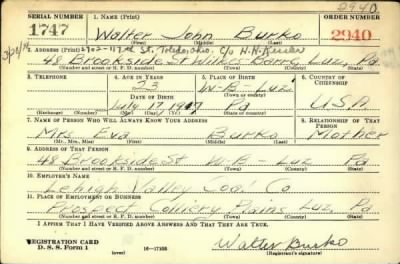 2940
SERIAL NUMBER 1. NAME (Print) ORDER NUMBER
1747 Walter John Burko 2940
(First) (Middle) (Last)
2. ADDRESS (Print) 2702-117th St. Toledo, Ohio. C/o H. H. Kessler
48 Brookside St Wilkes-Barre, Luz, Pa
(Number and street or R. F. D. number) (Town) (County) (State)
3. TELEPHONE 4. AGE IN YEARS 5. PLACE OF BIRTH 6. COUNTRY OF CITIZENSHIP
23 W-B-Luz.
DATE OF BIRTH (Town or county)
July 17, 1917 Pa U.S.A
(Exchange) (Number) (Mo.) (Day) (Yr.) (State or country)
7. NAME OF PERSON WHO WILL ALWAYS KNOW YOUR ADDRESS 8. RELATIONSHIP OF THAT PERSON
Mrs. Eva Burko Mother
(Mr., Mrs., Miss) (First) (Middle) (Last)
9. ADDRESS OF THAT PERSON
48 Brookside St W-B-Luz Pa
(Number and street or R. F. D. number) (Town) (County) (State)
10. EMPLOYER'S NAME
Lehigh Valley Coal Co
11. PLACE OF EMPLOYMENT OR BUSINESS
Prospect Colliery Plains Luz, Pa
(Number and street or R. F. D. number) (Town) (County) (State)
I AFFIRM THAT I HAVE VERIFIED ABOVE ANSWERS AND THAT THEY ARE TRUE.
REGISTRATION CARD
D. S. S. Form 1 (over) 16-17105 Walter Burko
(Registrant's signature)